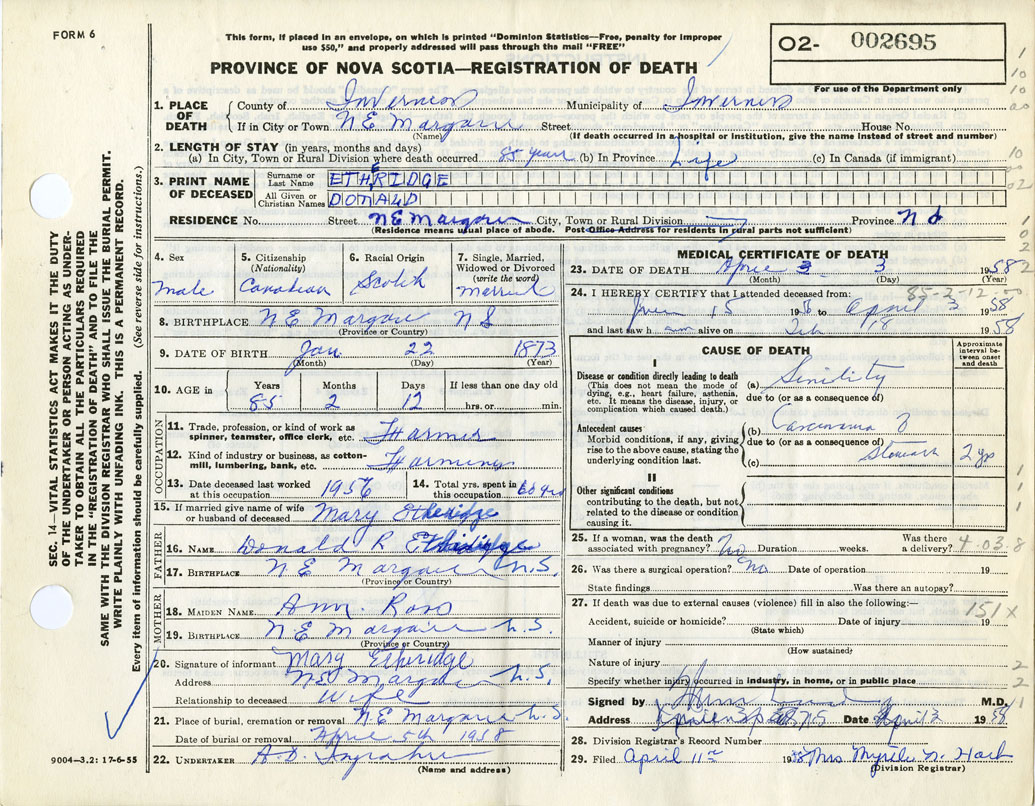 FORM 6
This form, if placed in an envelope, on which is printed "Dominion Statistics—Free, penalty for improper
use $50," and properly addressed will pass through the mail "FREE"
O2- 002695
For use of the Department only
PROVINCE OF NOVA SCOTIA—REGISTRATION OF DEATH
1. PLACE OF DEATH
County of Inverness Municipality of Inverness
If in City or Town N E Margaree Street House No.
(Name) (If death occurred in a hospital or institution, give the name instead of street and number)
2. LENGTH OF STAY (in years, months and days)
(a) In City, Town or Rural Division where death occurred 85 years (b) In Province Life (c) In Canada (if immigrant)
3. PRINT NAME OF DECEASED
Surname or Last Name ETHERIDGE
All Given or Christian Names DONALD
RESIDENCE No. Street N E Margaree City, Town or Rural Division Province N S
(Residence means usual place of abode. Post-Office Address for residents in rural parts not sufficient)
4. Sex Male
5. Citizenship (Nationality) Canadian
6. Racial Origin Scotch
7. Single, Married, Widowed or Divorced (write the word) Married
8. BIRTHPLACE N E Margaree N S
(Province or Country)
9. DATE OF BIRTH Jan 22 1873
(Month) (Day) (Year)
10. AGE in Years Months Days If less than one day old
85 2 12 hrs. or min.
OCCUPATION
11. Trade, profession, or kind of work as
spinner, teamster, office clerk, etc. Farmer
12. Kind of industry or business, as cotton-
mill, lumbering, bank, etc. Farming
13. Date deceased last worked
at this occupation 1956
14. Total yrs. spent in
this occupation 60 yrs
15. If married give name of wife
or husband of deceased Mary Etheridge
FATHER
16. NAME Donald R Etheridge
17. BIRTHPLACE N E Margaree N.S.
(Province or Country)
MOTHER
18. MAIDEN NAME Ann Ross
19. BIRTHPLACE N E Margaree N.S.
(Province or Country)
20. Signature of informant Mary Etheridge
Address N E Margaree N.S.
Relationship to deceased Wife
21. Place of burial, cremation or removal N E Margaree N.S.
Date of burial or removal April 5th 1958
22. UNDERTAKER A. D. Ingraham
(Name and address)
9004—3.2: 17-6-55
MEDICAL CERTIFICATE OF DEATH
23. DATE OF DEATH April 3 1958
(Month) (Day) (Year)
85-2-12
24. I HEREBY CERTIFY that I attended deceased from:
15 to April 3 1958
and last saw h im alive on Feb 18 1958
CAUSE OF DEATH
Approximate interval between onset and death
I
Disease or condition directly leading to death
(This does not mean the mode of
dying, e.g., heart failure, asthenia,
etc. It means the disease, injury, or
complication which caused death.)
(a) Senility
due to (or as a consequence of)
Antecedent causes
Morbid conditions, if any, giving
rise to the above cause, stating the
underlying condition last.
(b) Carcinoma of
due to (or as a consequence of)
(c) Stomach 2 yrs
II
Other significant conditions
contributing to the death, but not
related to the disease or condition
causing it.
25. If a woman, was the death
associated with pregnancy? No Duration weeks. Was there
a delivery?
4.03.8
26. Was there a surgical operation? No Date of operation 19
State findings Was there an autopsy?
27. If death was due to external causes (violence) fill in also the following:—
151 X
Accident, suicide or homicide? Date of injury 19
(State which)
Manner of injury
(How sustained)
Nature of injury
Specify whether injury occurred in industry, in home, or in public place
Signed by M.D.
Address Date April 3 1958
28. Division Registrar's Record Number
29. Filed April 11th 1958 Mrs Myrtle N. Hart
(Division Registrar)
SEC. 14—VITAL STATISTICS ACT MAKES IT THE DUTY
OF THE UNDERTAKER OR PERSON ACTING AS UNDER-
TAKER TO OBTAIN ALL THE PARTICULARS REQUIRED
IN THE "REGISTRATION OF DEATH" AND TO FILE THE
SAME WITH THE DIVISION REGISTRAR WHO SHALL ISSUE THE BURIAL PERMIT.
WRITE PLAINLY WITH UNFADING INK. THIS IS A PERMANENT RECORD.
Every item of information should be carefully supplied. (See reverse side for instructions.)